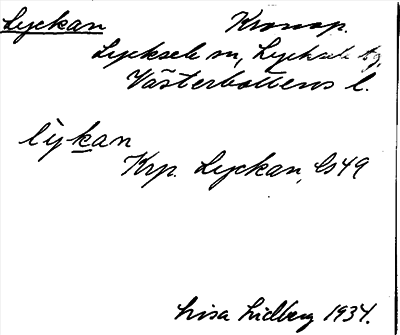 Lyckan Kronop.
Lycksele sn, Lycksele tg.
Västerbottens l.
lỳkan
Krp. Lyckan, Gs 49
Lisa Lidberg 1934.